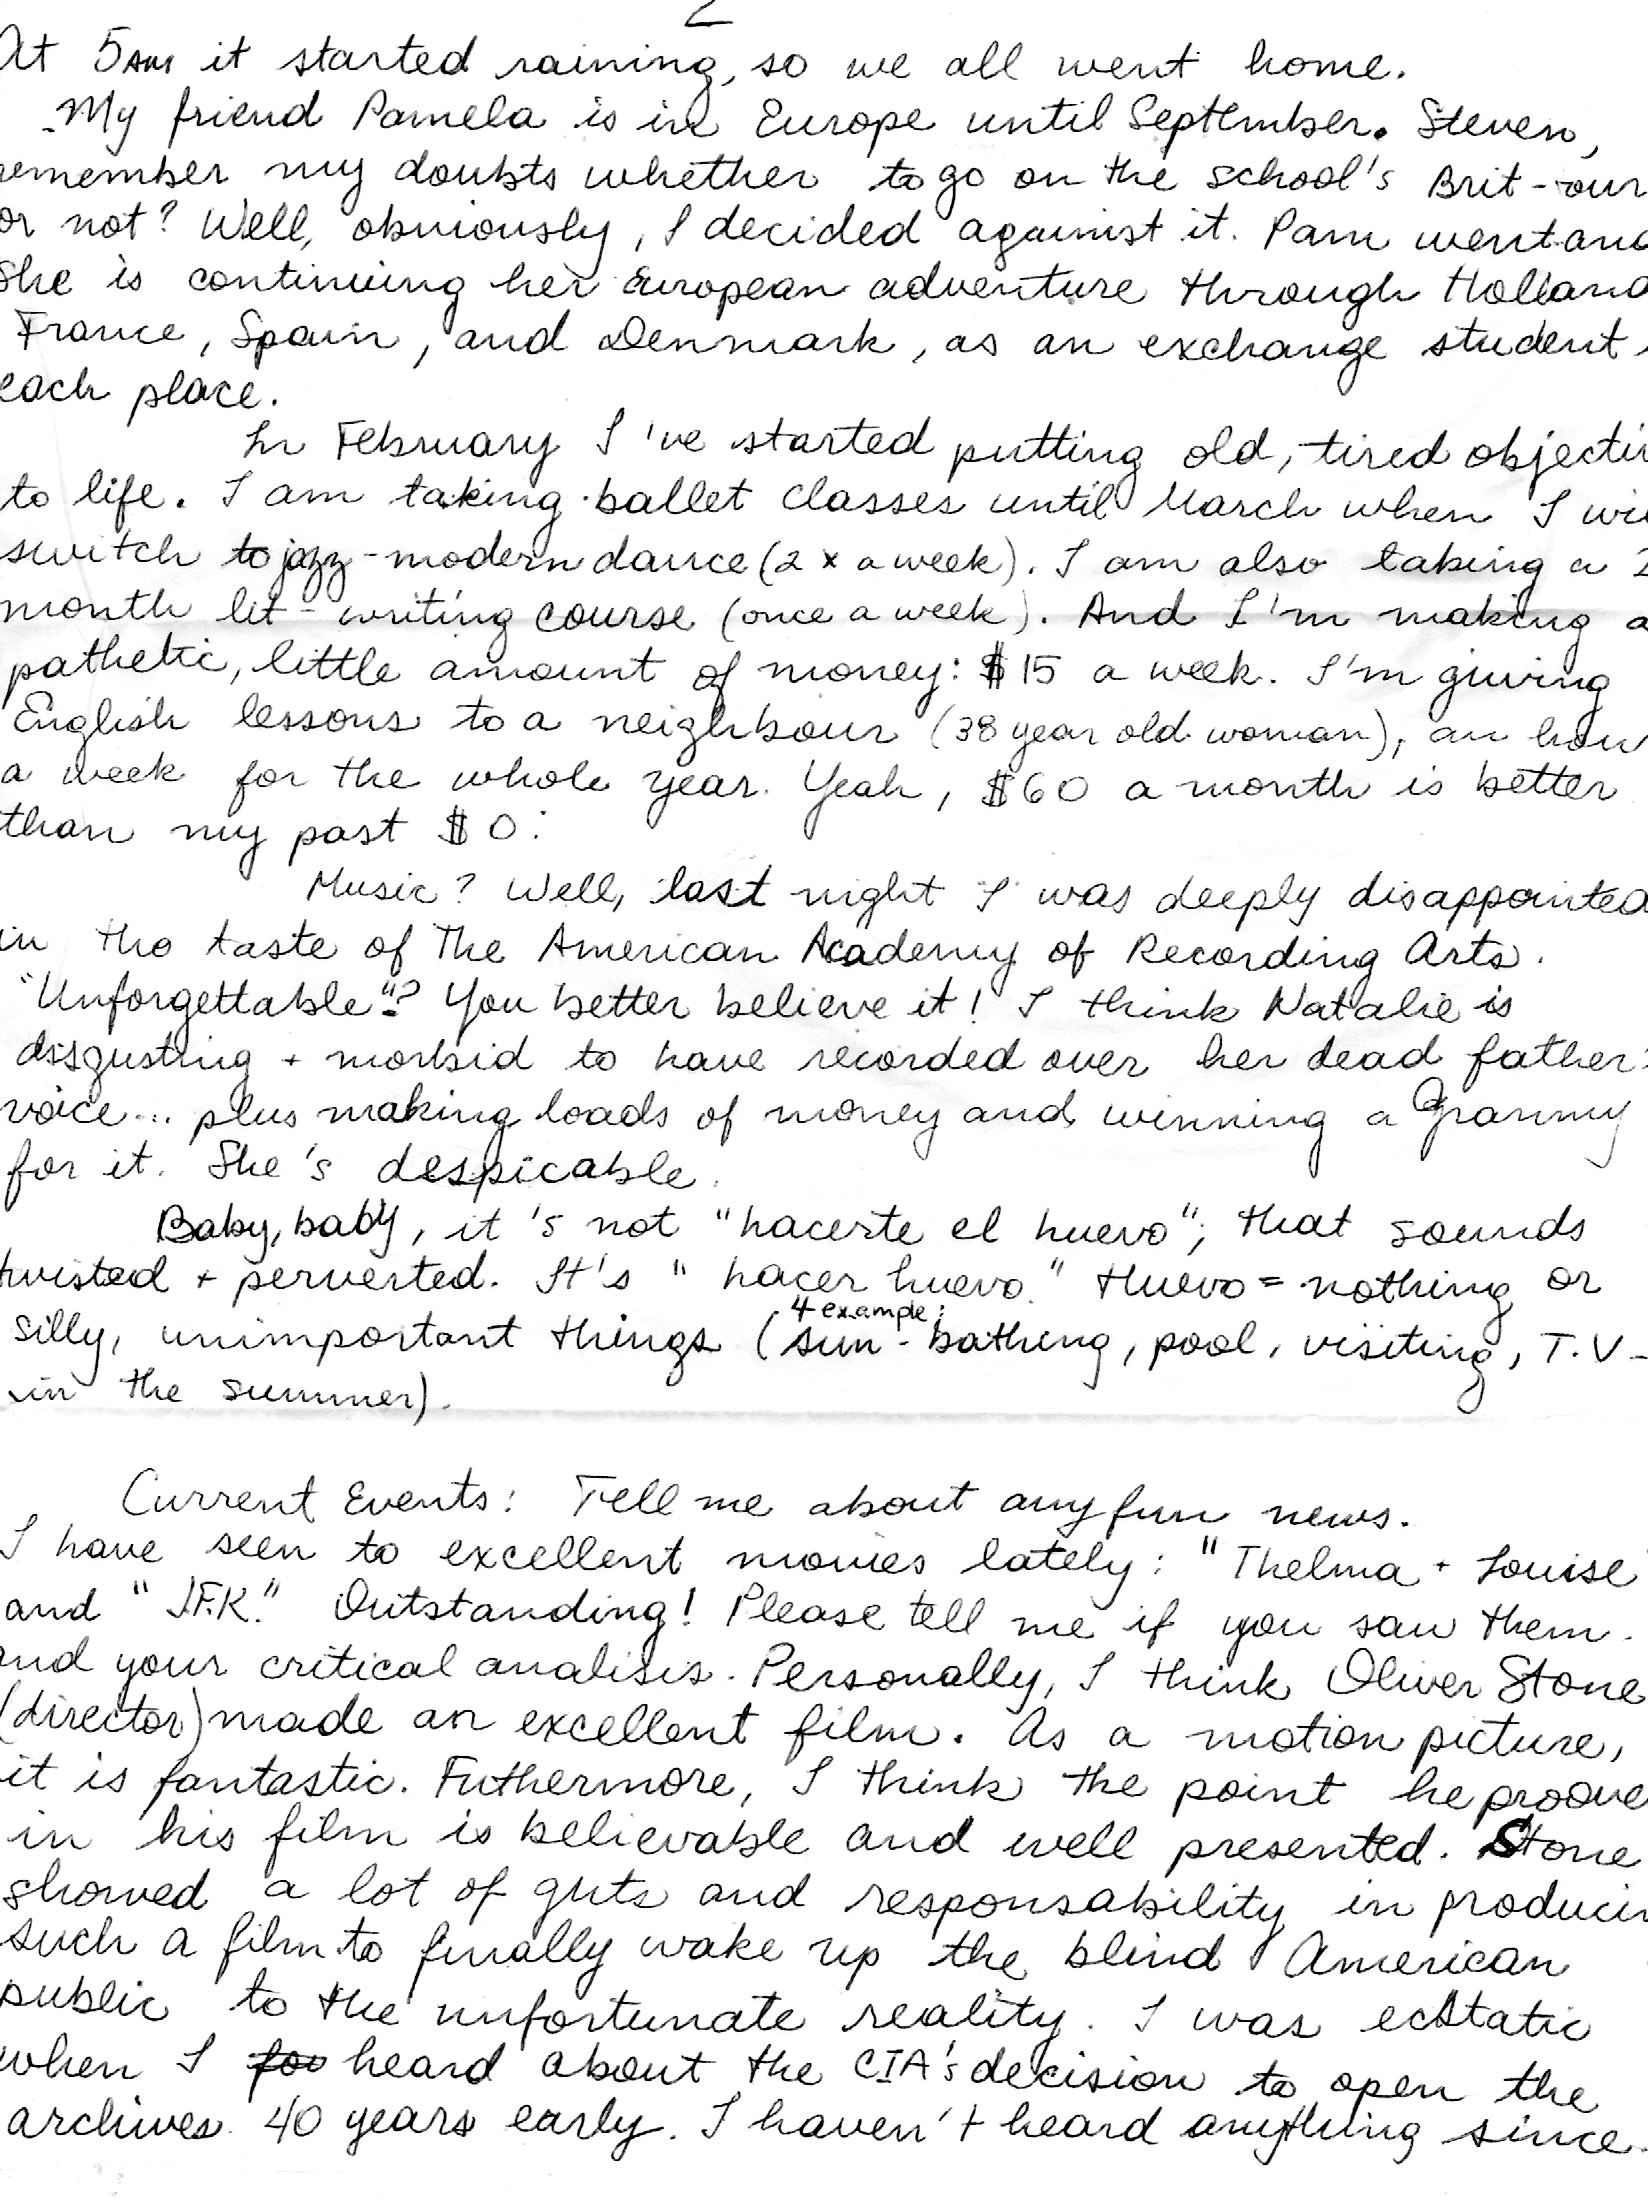 2
At 5AM it started raining, so we all went home.
My friend Pamela is in Europe until September. Steven,
remember my doubts whether to go on the school's Brit-our
or not? Well, obviously, I decided against it. Pam went and
She is continuing her European adventure through Holland
France, Spain, and Denmark, as an exchange student
each place.
In February I've started putting old, tired objectiv
to life. I am taking ballet classes until March when I wi
switch to jazz-modern dance (2 x a week). I am also taking a 2
month lit-writing course (once a week). And I'm making a
pathetic, little amount of money: $15 a week. I'm giving
English lessons to a neighbour (38 year old woman), an hour
a week for the whole year. Yeah, $60 a month is better
than my past $0.
Music? Well, last night I was deeply disappointed
in the taste of The American Academy of Recording Arts.
"Unforgettable"? You better believe it! I think Natalie is
disgusting + morbid to have recorded over her dead father's
voice... plus making loads of money and winning a Grammy
for it. She's despicable.
Baby, baby, it's not "hacerte el huevo"; that sounds
twisted + perverted. It's "hacer huevo." Huevo = nothing or
silly, unimportant things (4 example: sun-bathing, pool, visiting, T.V-
in the summer).
Current Events: Tell me about any fun news.
I have seen to excellent movies lately: "Thelma + Louise"
and "J.F.K." Outstanding! Please tell me if you saw them.
and your critical analisis. Personally, I think Oliver Stone
(director) made an excellent film. As a motion picture,
it is fantastic. Futhermore, I think the point he proove
in his film is believable and well presented. Stone
showed a lot of guts and responsability in producin
such a film to finally wake up the blind American
public to the unfortunate reality. I was ecstatic
when I foo heard about the CIA's decision to open the
archives 40 years early. I haven't heard anything since.